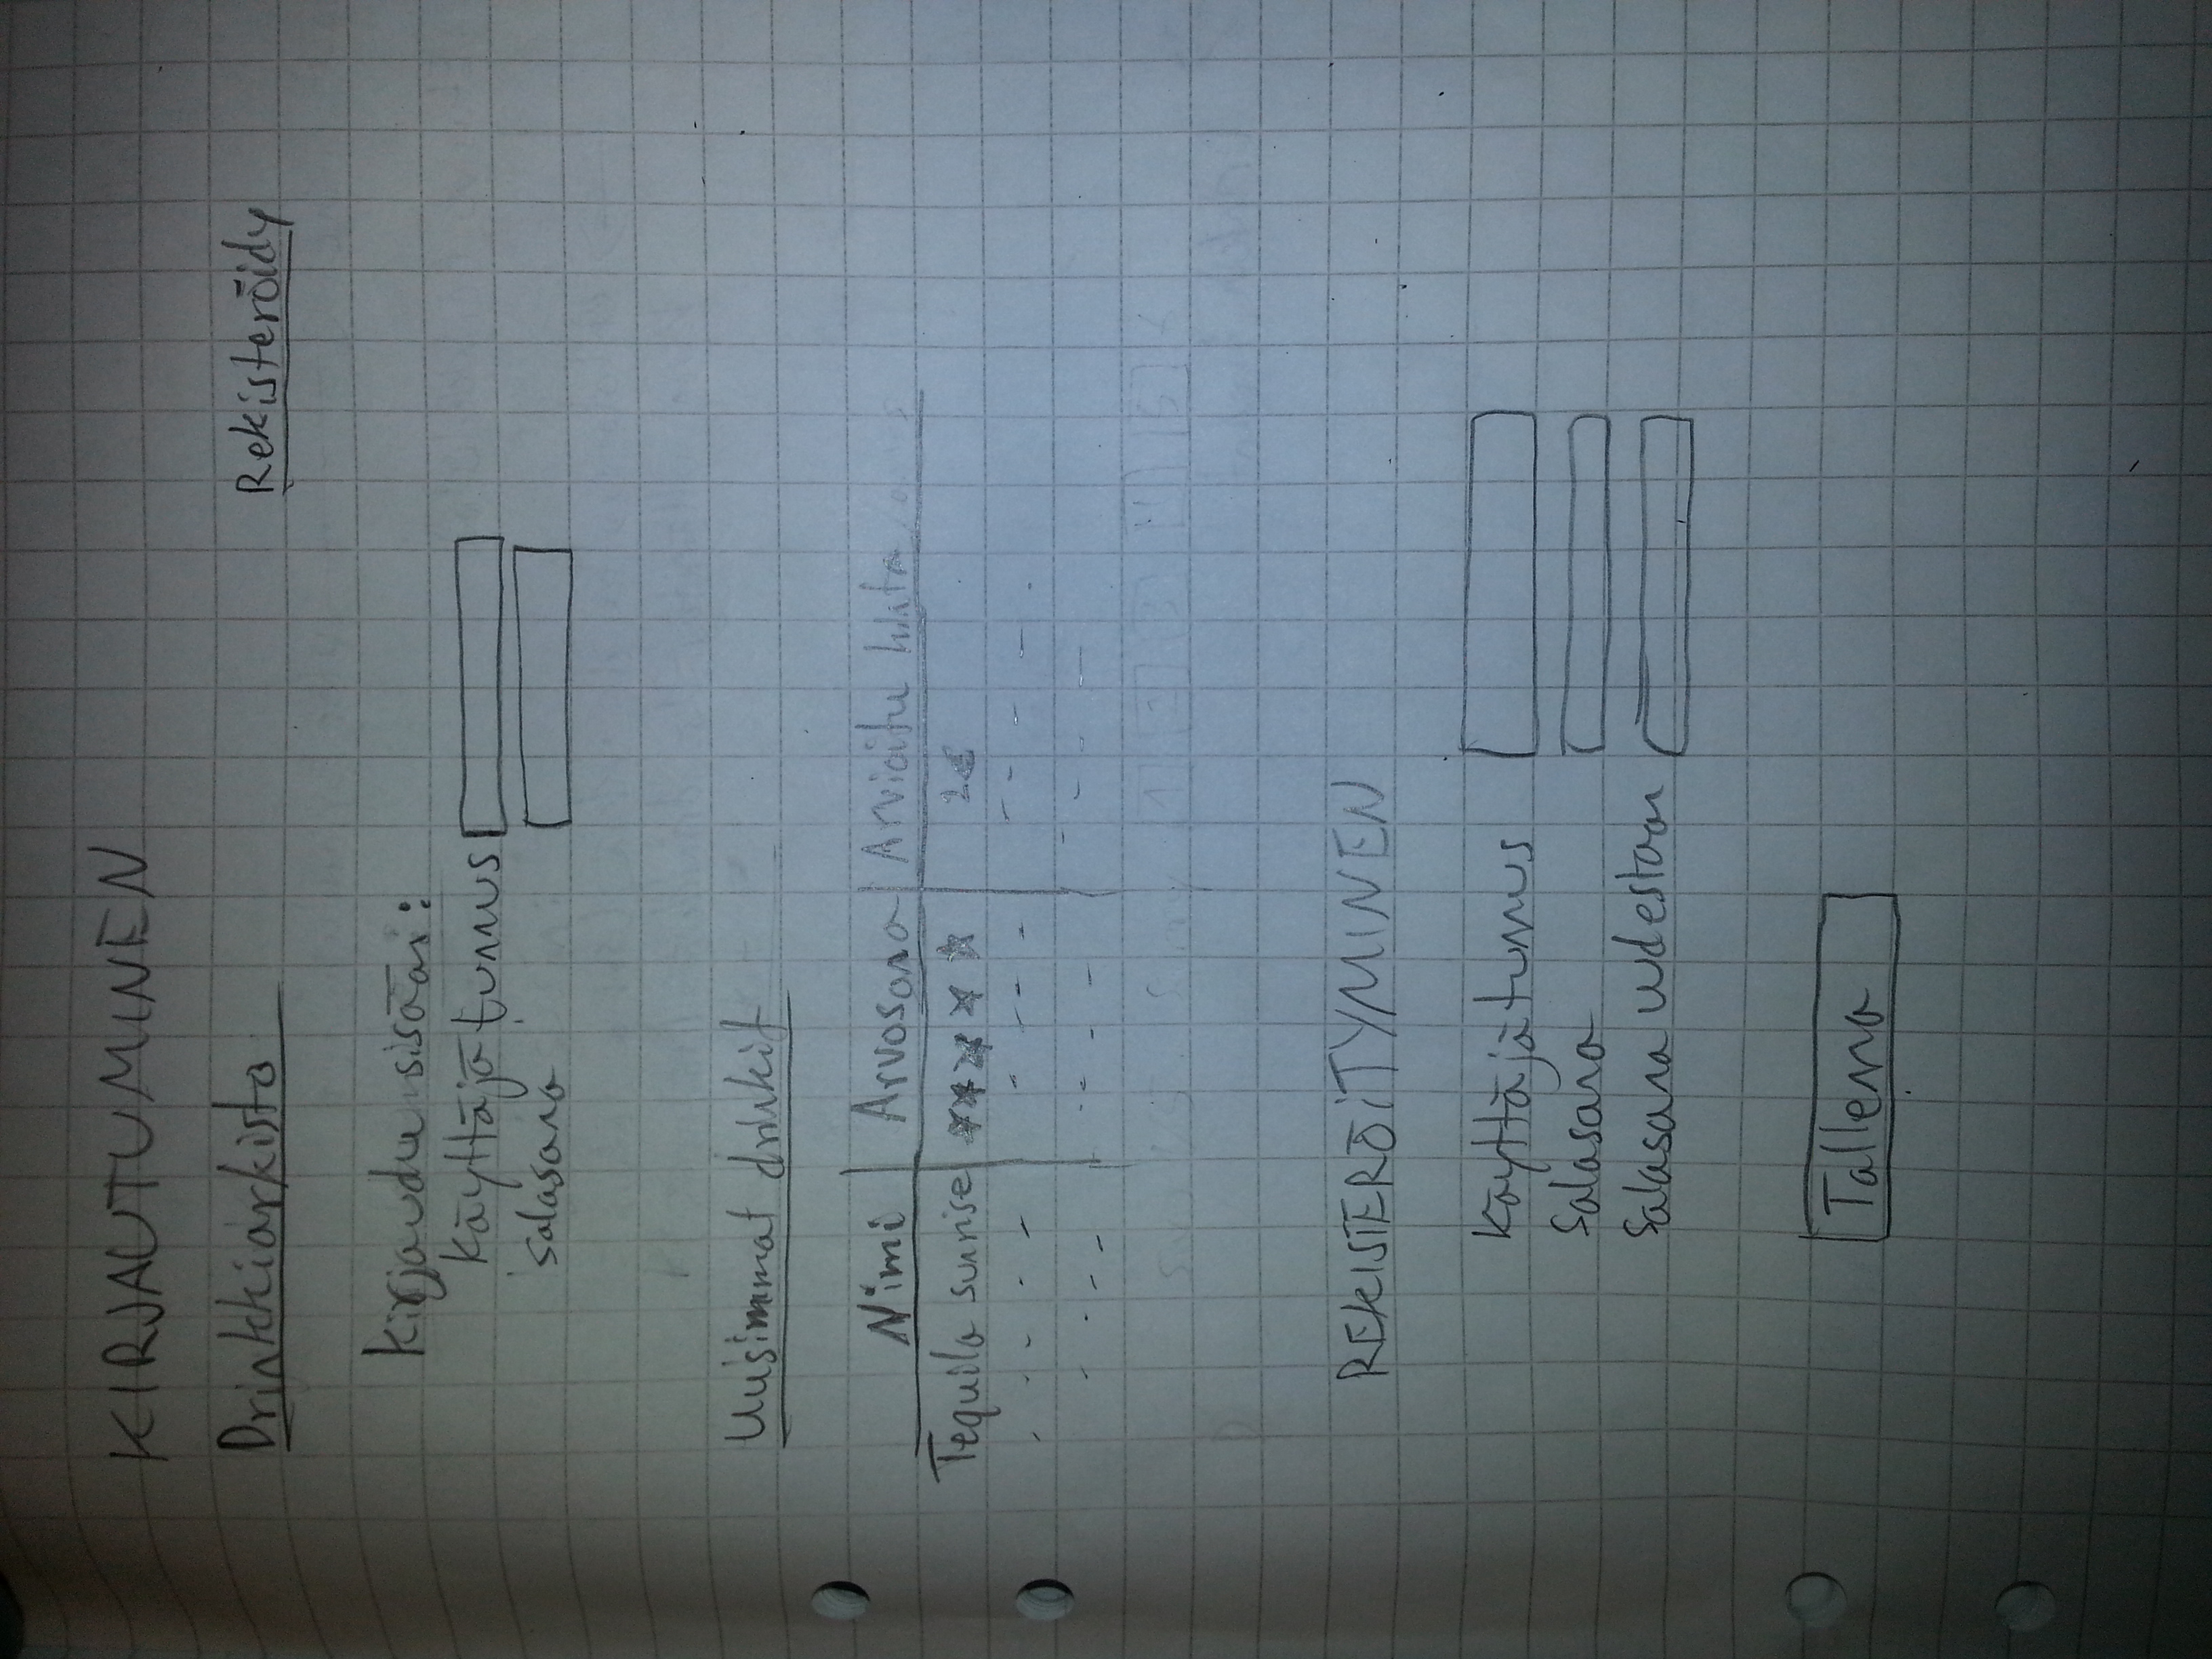 KIRJAUTUMINEN
Drinkkiarkisto Rekisteröidy
Kirjaudu sisään:
Käyttäjätunnus
Salasana
Uusimmat drinkit
Nimi Arvosana Arvioitu hinta
Tequila sunrise ***** 2€
REKISTERÖITYMINEN
Käyttäjätunnus
Salasana
Salasana uudestaan
Tallenna